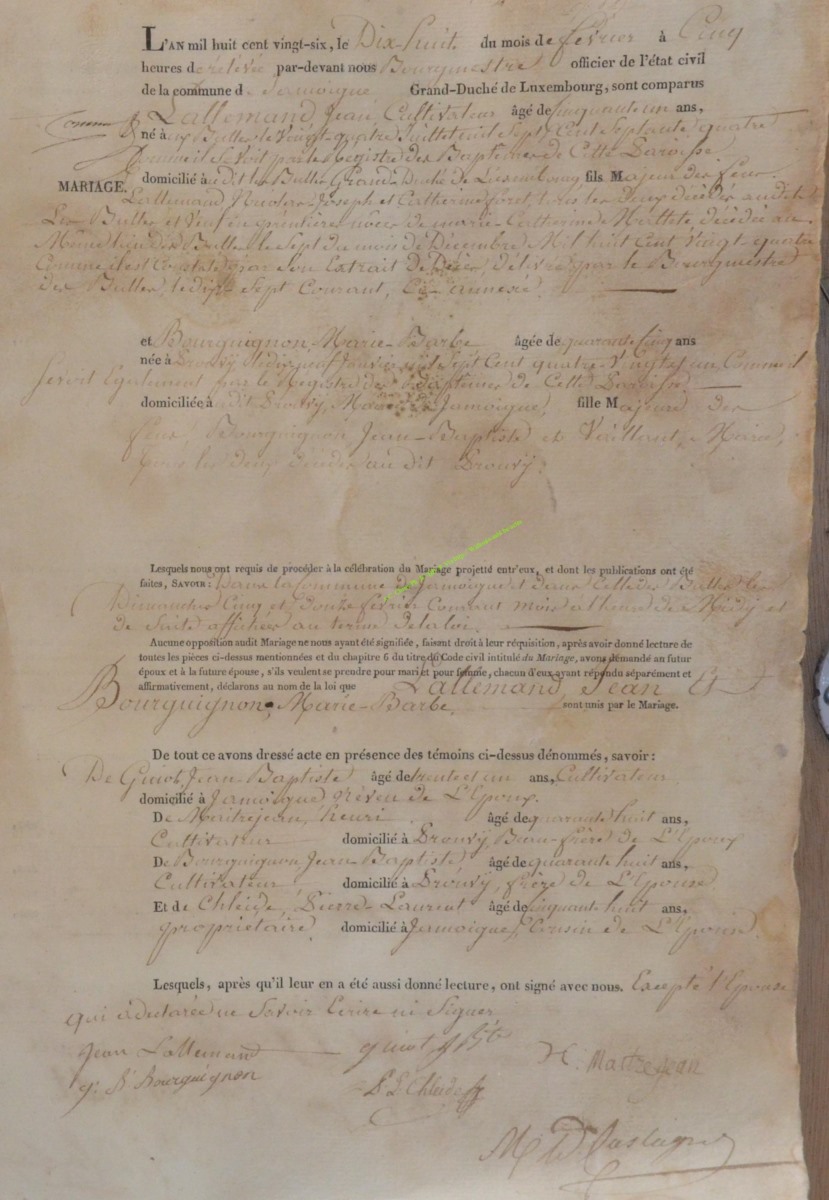 L'AN mil huit cent vingt-six, le Dix-huit du mois de février à Cinq
heures de relevée par-devant nous Bourgmestre officier de l'état civil
de la commune de Jamoigne Grand-Duché de Luxembourg, sont comparus
Lallemand Jean, Cultivateur âgé de cinquante un ans,
né à aux Bulles le Vaingt quatre Juillet mil Sept Cent Septante quatre
Comme il Se Voit par le Registre des Baptêmes de Cette Paroisse
MARIAGE. domicilié à audit les Bulles Grand Duché de Luxembourg fils Majeur des feus
Lallemand Nicolas Joseph et Catherine tous les deux décédés audit
Les Bulles et Veuf en première nôces de marie-Catherine décédée au
Même lieu des Bulles le Sept du mois de Décembre Mil huit Cent Vaingt-quatre
Comme il est Constaté par Son Extrait de Décès, délivré par le Bourgmestre
des Bulles, le dix Sept Courant, Ci-annexé.
et Bourguignon Marie-Barbe âgée de quarante Cinq ans
née à Prouvy le dix neuf Janvier mil Sept Cent quatre-Vingt et un Comme il
Se voit Egalement par le Registre des Baptêmes de Cette Paroisse
domiciliée à audit Prouvy, Jamoigne, fille Majeure des
feus Bourguignon Jean-Baptiste et Marie,
tous les deux décédés au dit Prouvy.
Lesquels nous ont requis de procéder à la célébration du Mariage projetté entr'eux, et dont les publications ont été
faites, SAVOIR: Dans la Commune de Jamoigne et dans Celle des Bulles les
Dimanches Cinq et douze février Courant mois à l'heure de Midy et
de Suite affichés au terme de la loi.
Aucune opposition audit Mariage ne nous ayant été signifiée, faisant droit à leur réquisition, après avoir donné lecture de
toutes les pièces ci-dessus mentionnées et du chapitre 6 du titre du Code civil intitulé du Mariage, avons demandé au futur
époux et à la future épouse, s'ils veulent se prendre pour mari et pour femme, chacun d'eux ayant répondu séparément et
affirmativement, déclarons au nom de la loi que Lallemand Jean Et
Bourguignon, Marie-Barbe sont unis par le Mariage.
De tout ce avons dressé acte en présence des témoins ci-dessus dénommés, savoir:
De Guiot Jean-Baptiste âgé de trente et un ans, Cultivateur
domicilié à Jamoigne Néveu de L'Epoux.
De Maitrejean, henri âgé de quarante huit ans,
Cultivateur domicilié à Prouvy Beau-frère de L'Epoux
De Bourguignon Jean-Baptiste âgé de quarante huit ans,
Cultivateur domicilié à Prouvy, frère de L'Epouse
Et de Chleide, Pierre-Laurent âgé de cinquante huit ans,
propriétaire domicilié à Jamoigne, Cousin de L'Epouse.
Lesquels, après qu'il leur en a été aussi donné lecture, ont signé avec nous. Excepté l'Epouse
qui a déclarée ne Savoir Ecrire ni Signer
Jean Lallemand guiot J Bte H: Maitrejean
J: B Bourguignon P L Chleide